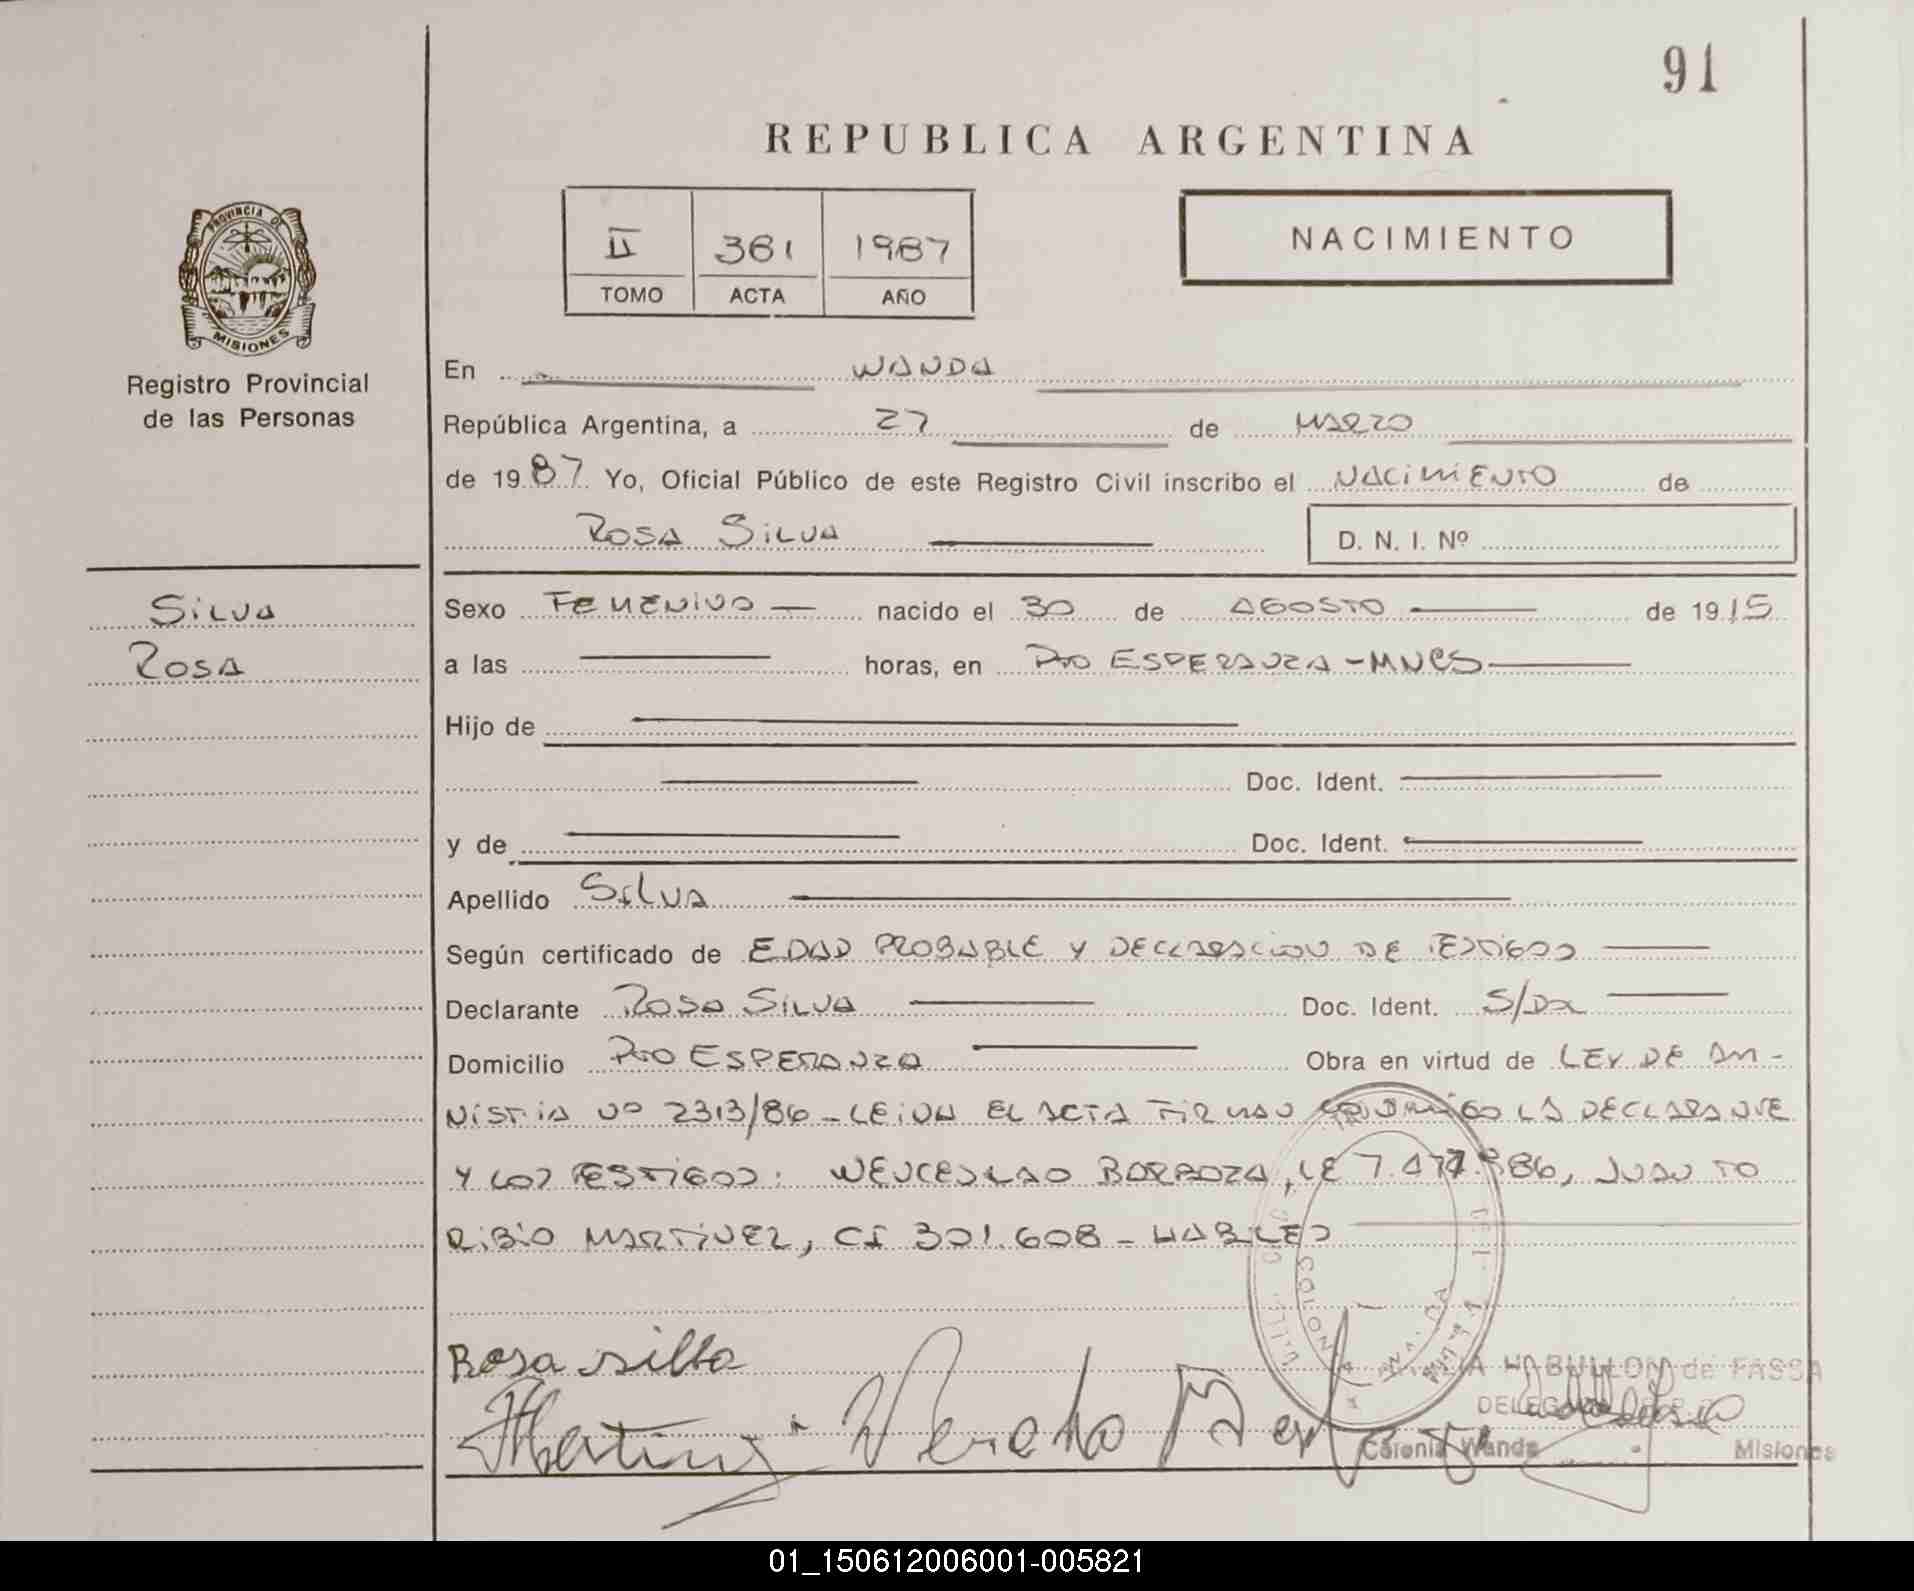 91
REPUBLICA ARGENTINA
II 381 1987
TOMO ACTA AÑO
NACIMIENTO
PROVINCIA DE
MISIONES
Registro Provincial
de las Personas
En WANDA
República Argentina, a 27 de MARZO
de 1987 Yo, Oficial Público de este Registro Civil inscribo el NACIMIENTO de
ROSA SILVA D. N. I. Nº
SILVA
ROSA
Sexo FEMENINO nacido el 30 de AGOSTO de 1915
a las horas, en PTO ESPERANZA - MNES
Hijo de
Doc. Ident.
y de Doc. Ident.
Apellido SILVA
Según certificado de EDAD PROBABLE Y DECLARACION DE TESTIGOS
Declarante ROSA SILVA Doc. Ident. S/Dx
Domicilio PTO ESPERANZA Obra en virtud de LEY DE AM-
NISTIA Nº 2313/86 - LEIDA EL ACTA FIRMAN CONMIGO LA DECLARANTE
Y LOS TESTIGOS: WENCESLAO BARBOZA, LE 7.477.986, JUAN TO
RIBIO MARTINEZ, CI 301.608 - HABILES
Rosa silba
HABULLON de FASSA
DELEGADA
Colonia Wanda Misiones
01_150612006001-005821